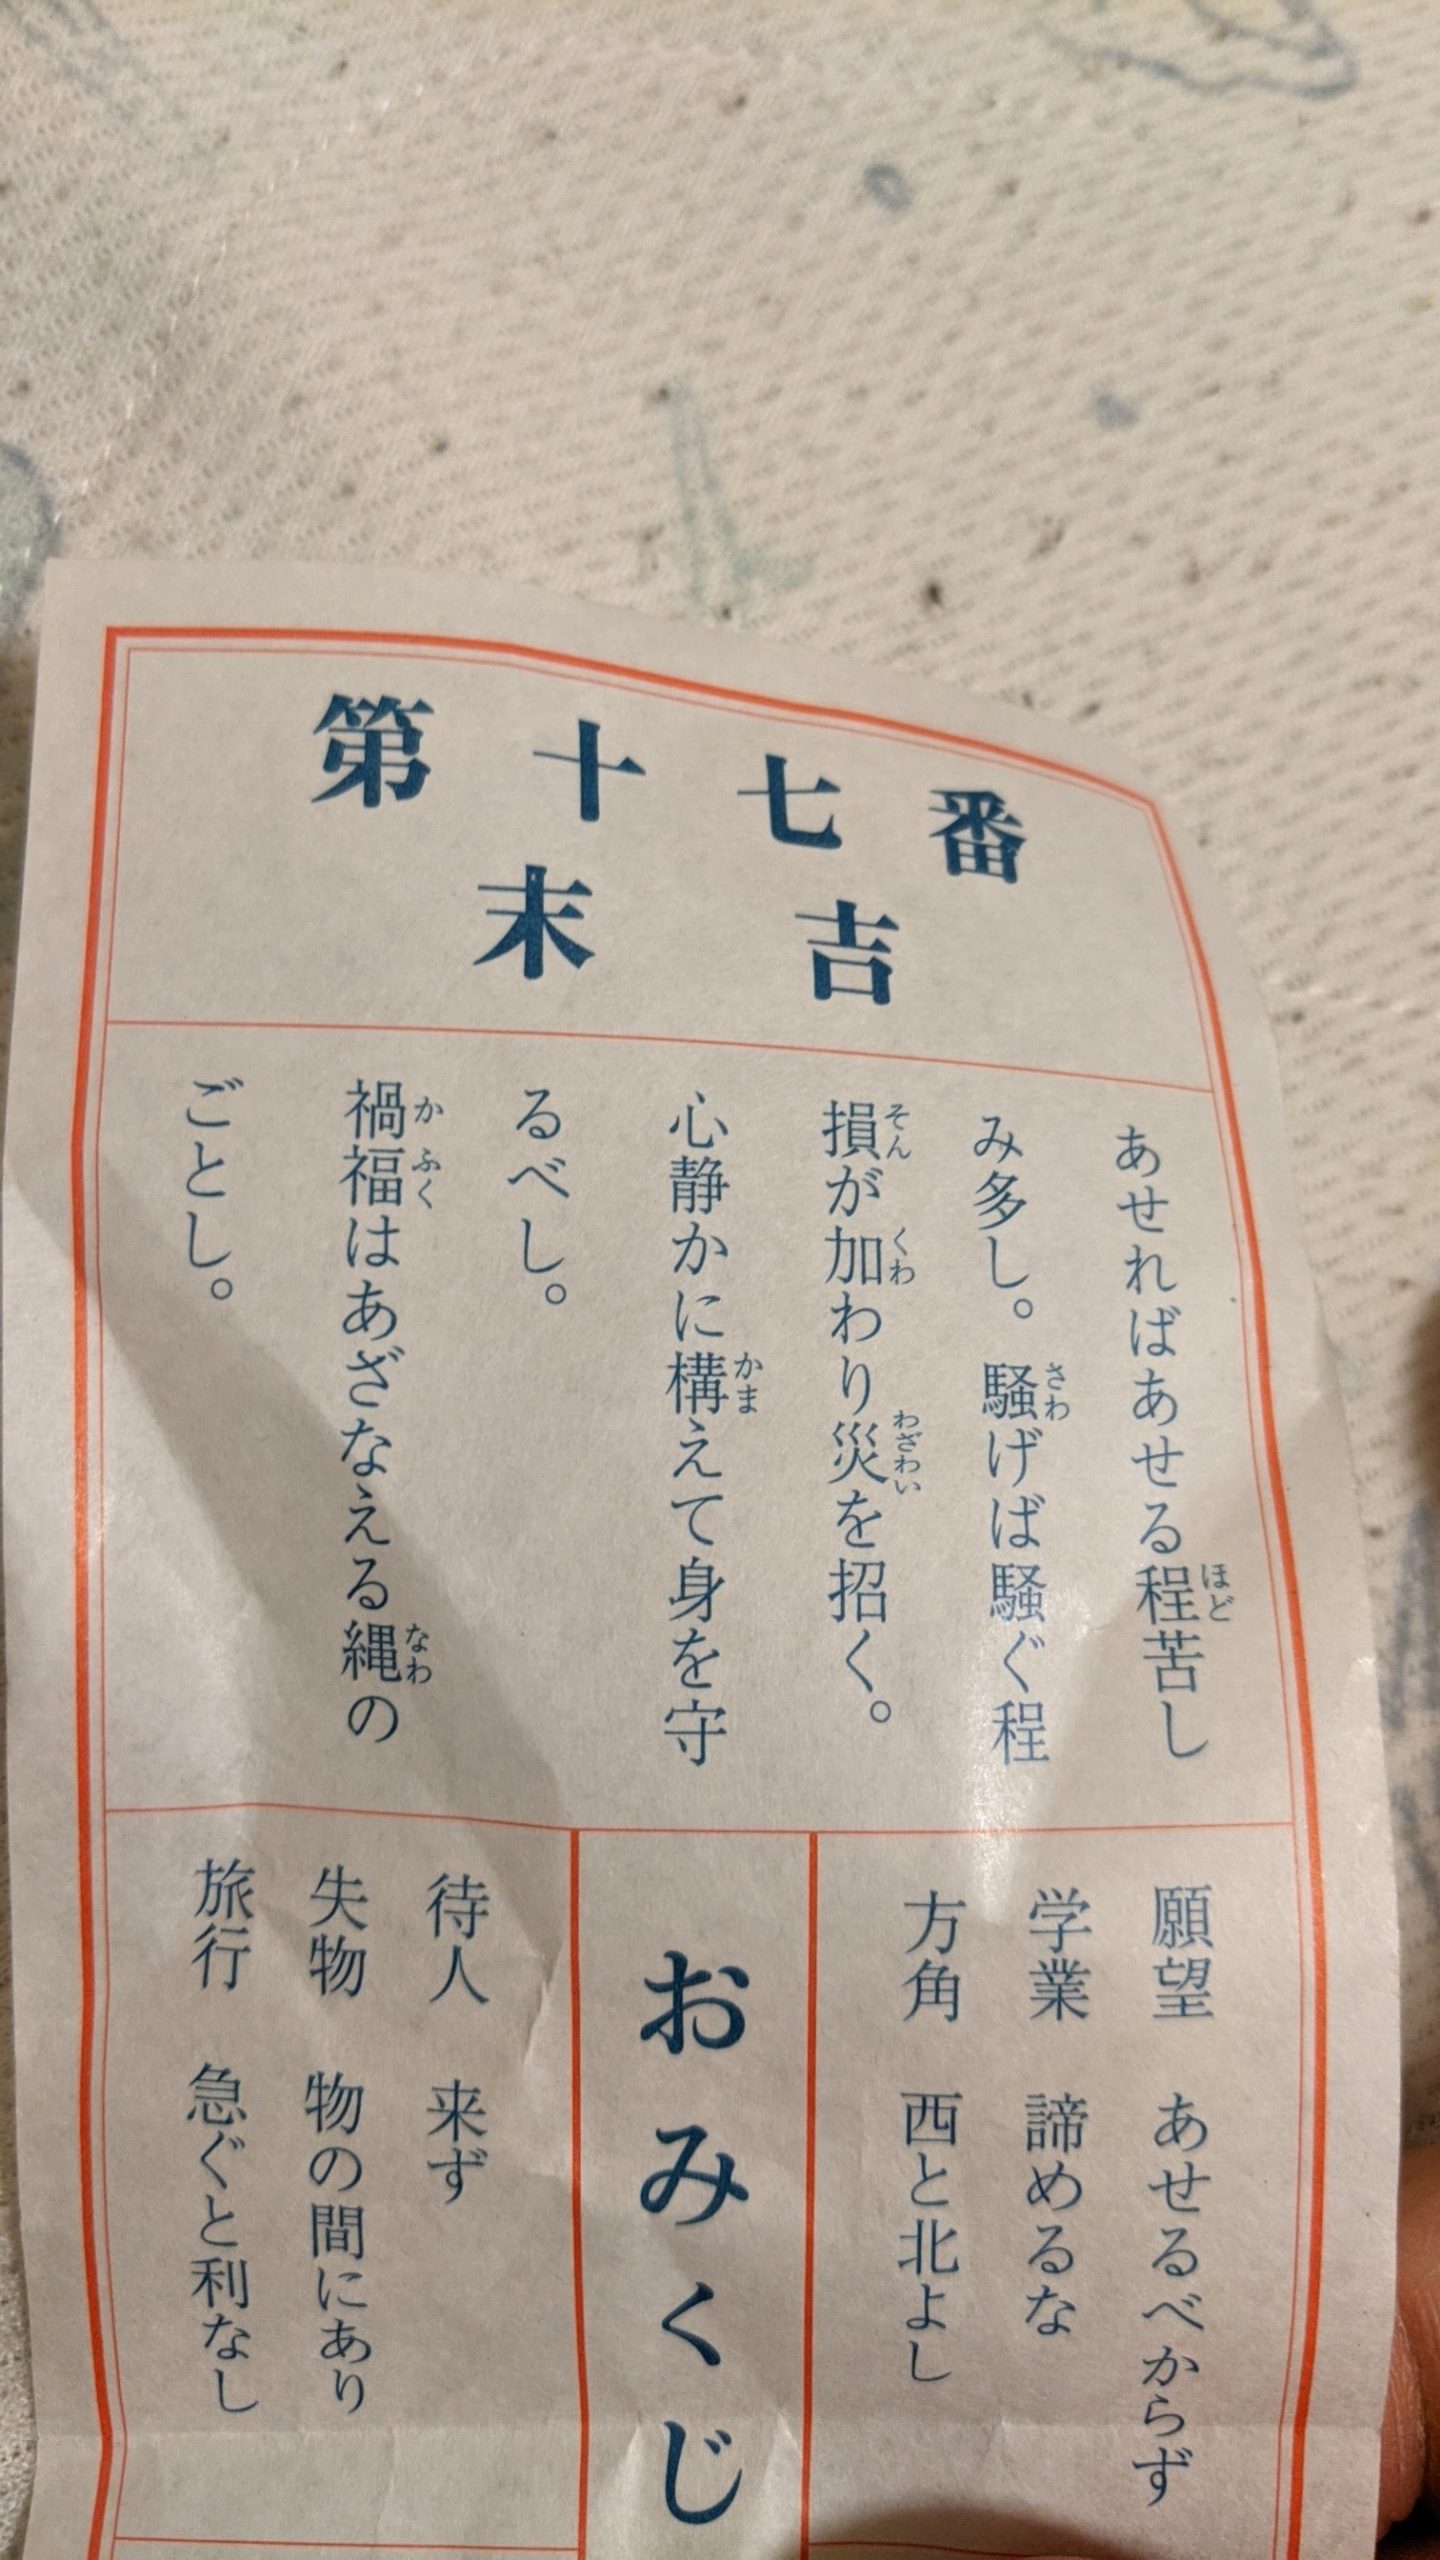 第十七番
末吉
あせればあせる程苦し
み多し。騒げば騒ぐ程
損が加わり災を招く。
心静かに構えて身を守
るべし。
禍福はあざなえる縄の
ごとし。
願望 あせるべからず
学業 諦めるな
方角 西と北よし
おみくじ
待人 来ず
失物 物の間にあり
旅行 急ぐと利なし